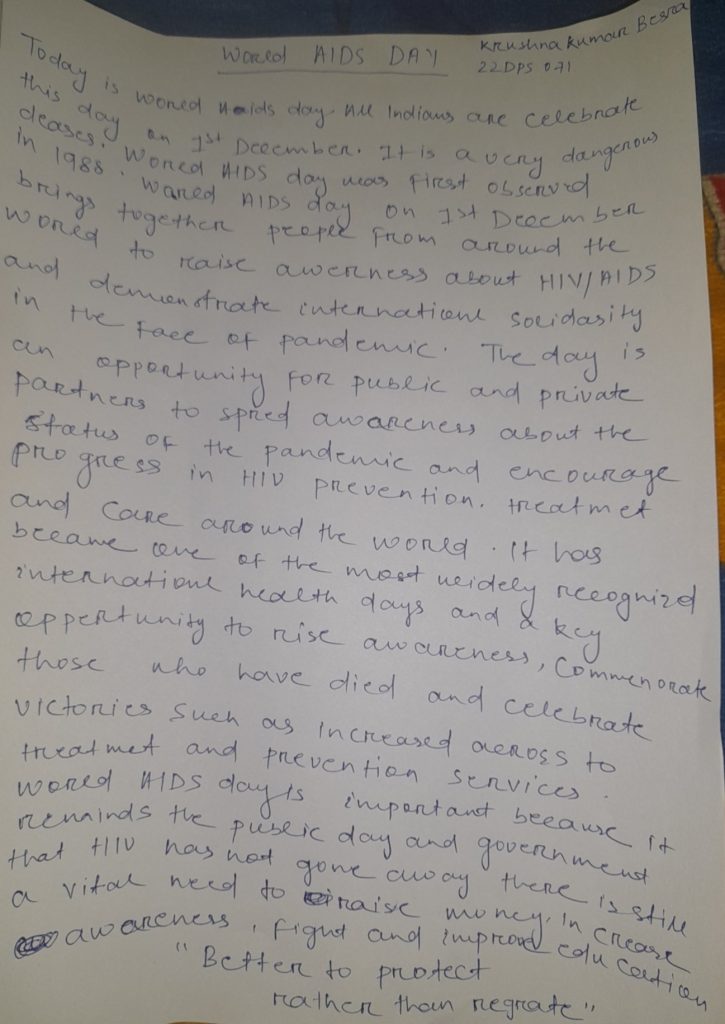 World AIDS DAY
Krushna Kumar Besra
22DPS 071
Today is world Aids day. All Indians are celebrate
this day on 1st December. It is a very dangerous
deases. World AIDS day was first observed
in 1988. World AIDS day on 1st December
brings together people from around the
world to raise awerness about HIV/AIDS
and demonstrate internationl solidasity
in the face of pandemic. The day is
an opportunity for public and private
partners to spred awareness about the
status of the pandemic and encourage
progress in HIV prevention. treatmet
and care around the world. It has
became one of the most widely recognized
internationl health days and a key
oppertunity to rise awareness, Commenorate
those who have died and celebrate
victories such as increased across to
treatmet and prevention services.
world AIDS day is important because it
reminds the public day and government
that HIV has not gone away there is still
a vital need to raise money, increase
awareness, fight and improve education
"Better to protect
rather than regrate"